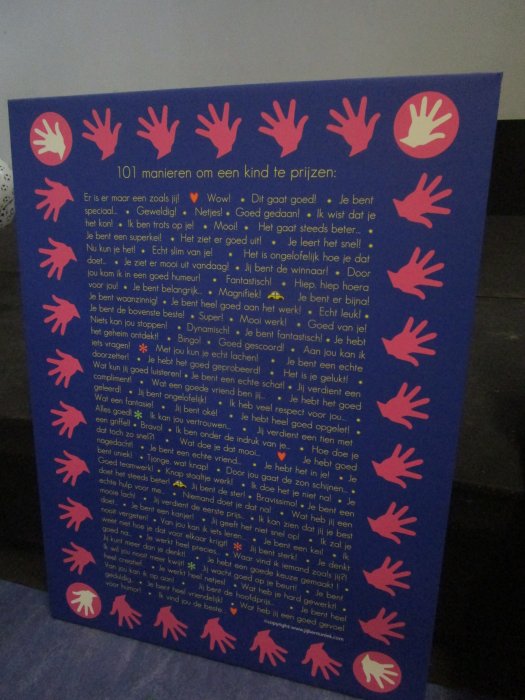 101 manieren om een kind te prijzen:
Er is er maar een zoals jij! Wow! • Dit gaat goed! • Je bent
speciaal.. • Geweldig! • Netjes! • Goed gedaan! • Ik wist dat je
het kon! • Ik ben trots op je! • Mooi! • Het gaat steeds beter.. •
Je bent een superkei! • Het ziet er goed uit! • Je leert het snel! •
Nu kun je het! • Echt slim van je! • Het is ongelofelijk hoe je dat
doet.. • Je ziet er mooi uit vandaag! • Jij bent de winnaar! • Door
jou kom ik in een goed humeur! • Fantastisch! • Hiep, hiep hoera
voor jou! • Je bent belangrijk.. • Magnifiek! Je bent er bijna!
Je bent waanzinnig! • Je bent heel goed aan het werk! • Echt leuk! •
Je bent de bovenste beste! • Super! • Mooi werk! • Goed van je!
Niets kan jou stoppen! • Dynamisch! • Je bent fantastisch! • Je hebt
het geheim ontdekt! • Bingo! • Goed gescoord! • Aan jou kan ik
iets vragen! Met jou kun je echt lachen! • Je bent een echte
doorzetter! • Je hebt het goed geprobeerd! • Het is je gelukt! •
Wat kun jij goed luisteren! • Je bent een echte schat! • Jij verdient een
compliment! • Wat een goede vriend ben jij... • Je hebt het goed
geleerd! • Jij bent ongelofelijk! • Ik heb veel respect voor jou... •
Wat een fantasie! • Jij bent oké! • Je hebt heel goed opgelet! •
Alles goed Ik kan jou vertrouwen... • Jij verdient een tien met
een griffel! • Bravo! • Ik ben onder de indruk van je... • Hoe doe je
dat toch zo snel?! • Wat doe je dat mooi... Je hebt goed
nagedacht! • Je bent een echte vriend... • Je hebt het in je! • Je
bent uniek! • Tjonge, wat knap! • Door jou gaat de zon schijnen... •
Goed teamwerk! • Knap staaltje werk! • Ik doe het je niet na! • Je
doet het steeds beter! Jij bent de ster! • Bravissimo! • Je bent een
echte hulp voor me... • Niemand doet je dat na! • Wat heb jij een
mooie lach! • Jij verdient de eerste prijs... • Ik kan zien dat jij je best
doet • Je bent een kanjer! • Jij geeft het niet snel op! • Ik zal je
nooit vergeten! • Van jou kan ik iets leren... • Je bent een kei! • Ik
weet niet hoe je dat voor elkaar krijgt! Jij bent sterk! • Je denkt
goed na... • Je werkt heel precies.. • Waar vind ik iemand zoals jij?!
Jij kunt meer dan je denkt! • Je hebt een goede keuze gemaakt ! •
Ik wil jou nooit meer kwijt! Jij wacht goed op je beurt! • Je bent
heel creatief.. • Je werkt heel netjes! • Wat heb je hard gewerkt!
Van jou kan ik op aan! • Jij bent de hoofdprijs.. • Je bent heel
geduldig.. • Je bent heel vriendelijk! • Wat heb jij een goed gevoel
voor humor! • Ik vind jou de beste.
©copyright www.jijbentuniek.com